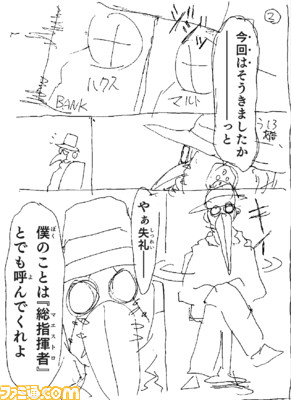 ②
今回はそうきましたか
――――っと
マルト
ハクス
BANK
やぁ失礼――
しつれい
僕のことは『総指揮者』
ぼく
マエストロ
とでも呼んでくれよ
よ
ファミ通.com